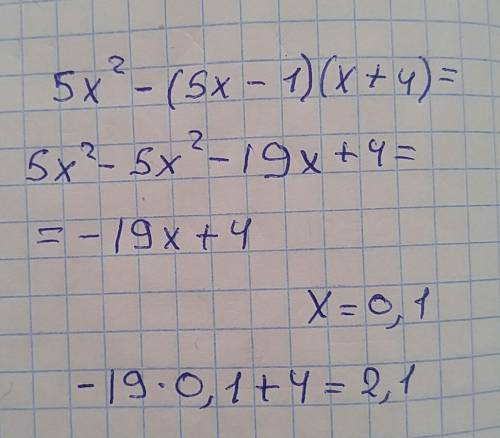 5x² - (5x - 1)(x + 4) =
5x² - 5x² - 19x + 4 =
= - 19x + 4
x = 0,1
- 19 · 0,1 + 4 = 2,1